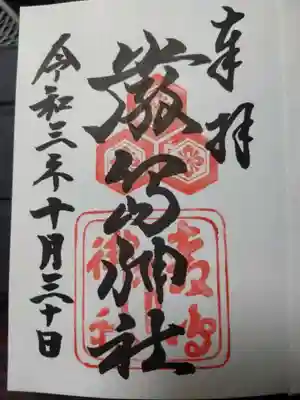 奉拝
厳島神社
令和三年十月三十日